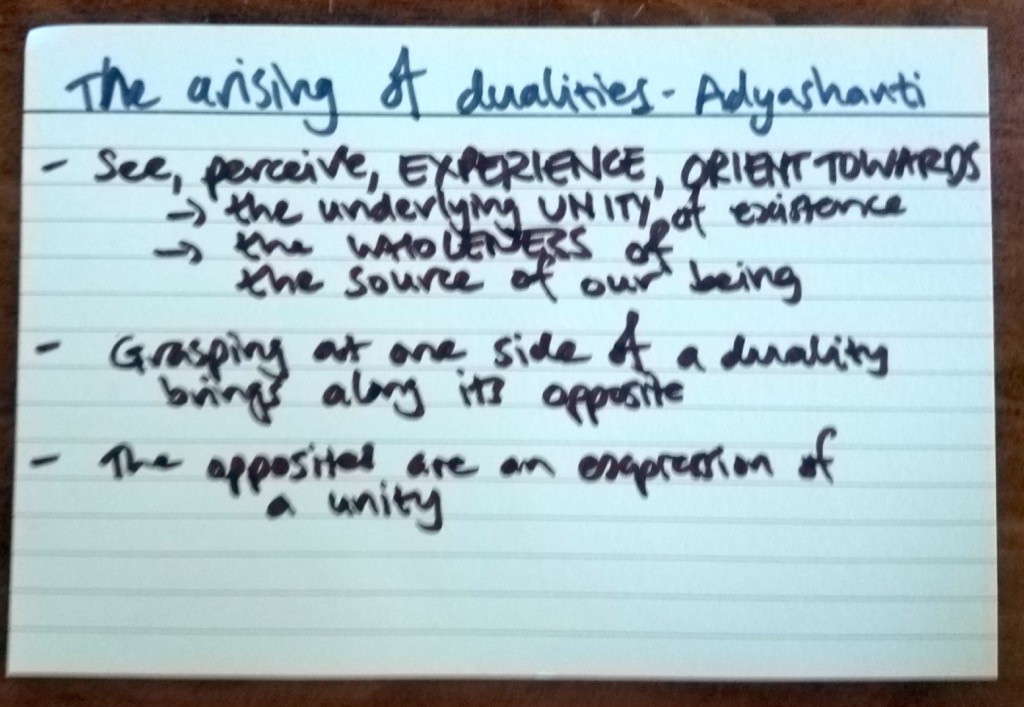 The arising of dualities - Adyashanti
- See, perceive, EXPERIENCE, ORIENT TOWARDS
→ the underlying UNITY of existence
→ the WHOLENESS of
the source of our being
- Grasping at one side of a duality
brings along its opposite
- The opposites are an expression of
a unity